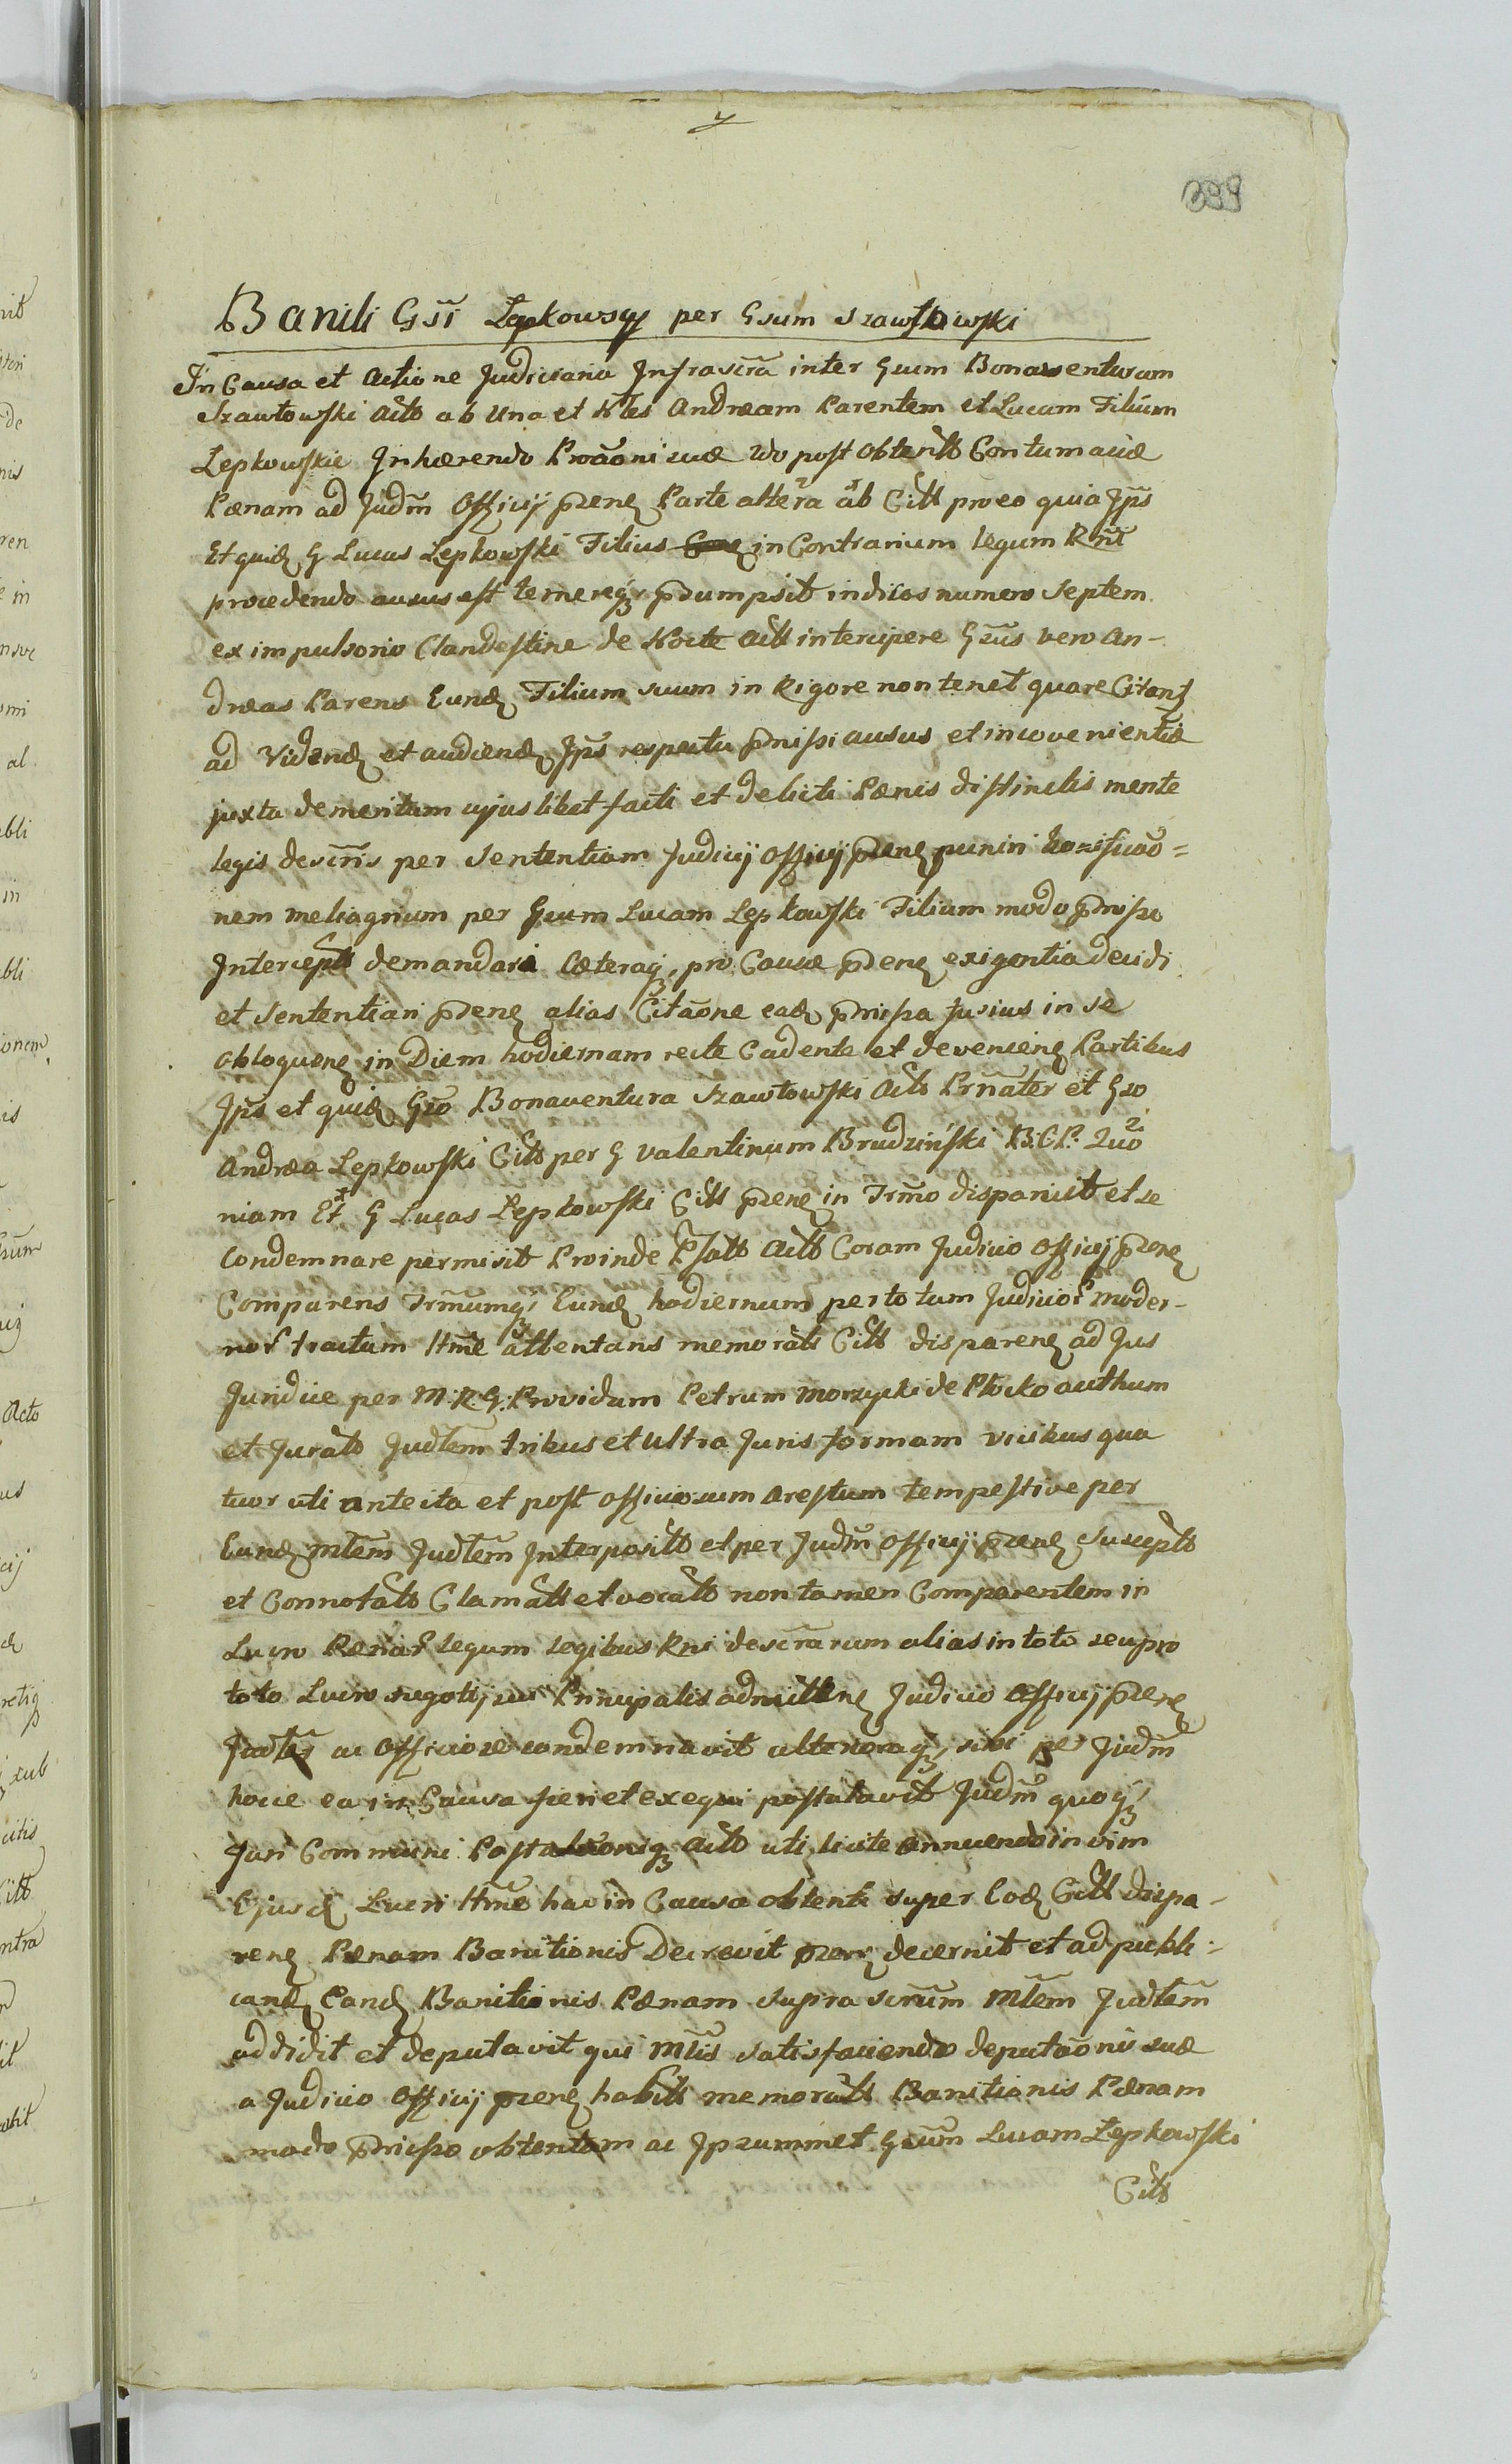 399
Baniti Gsi Łepkowscy per Gsum Szawłowski
In Causa et actione Judiciaria Infrascra inter Gsum Bonawenturam
Szawłowski actb ab Una et Nbles Andream Parentem et Lucam Filium
Łepkowskie Inhærendo Proāoni suæ 2do post obtentb Contumaciæ
Pænam ad Judm Officij præns Parte altera ab Citt pro eo quia Jps
Et quid G Lucas Łepkowski Filius in Contrarium legum Rni
procedendo ausus est temereqz præsumpsit indicos numero Septem
ex impulsorio Clandestine de Nocte actt intercipere Gsus vero An-
dreas Parens Eund Filium suum in Rigore non tenet quare Citant
ad Videnđ et audienđ Jps respectu præmissi ausus et inconvenientiæ
juxta demeritum cujuslibet facti et delicti Pænis distinctis mente
legis descris per Sententiam Judicij Officij præns puniri bonificāo=
nem meliagrium per Gsum Lucam Łepkowski Filium modo præmisso
Intercepti demandari Cæteraqz pro Causæ præns exigentia decidi
et Sententiari præns alias Citāone eađ præmissa fusius in se
obloquenz in Diem hodiernam recte Cadente et devenienz Partibus
Jps et quiđ Gso Bonaventura Szawłowski actb Prnaliter et Gso
Andrea Łepkowski Citb per G Valentinum Brudziński B.C.P. Quo
niam Et G Lucas Łepkowski Citt præns in Trmo disparuit et se
Condemnare permisit Proinde Psatt actb Coram Judicio Officij præns
Comparens Trmumqz Eunđ hodiernum per totum Judicior moder-
nor tractum Ittme attentans memoratt Citt disparenz ad Jus
Juridice per M.R.G. Providum Petrum Morzycki de Płocko authum
et Juratb Judtem tribus et ultra Juris formam vicibus qua
tuor uti ante ita et post officiosum Arestum tempestive per
Eunđ Mtem Judtem Interpositb et per Judm Officij præns Susceptb
et Connotatb Clamatt et vocatb non tamen Comparentem in
Lucro Pænar legum legibus Rni descrarum alias in toto seu pro
toto Lucro negotij sui Principalis admittenz Judicio Officij præns
Judtes ac Officiose condemnavit ulterioraqz sibi per Judm
hocce ea in Causa fieri et exequi postulavit Judm quoqz
Juri Communi Postulationiqz actb uti licite annuendo in vim
Ejusđ Lucri Ittme hac in Causa obtenti super Eođ Citt dispa-
renz Pænam Banitionis Decrevit præns decernit et ad publi-
canđ Eanđ Banitionis Pænam suprascrum Mtem Judtem
addidit et deputavit qui Mtis satisfaciendo deputāoni suæ
a Judicio Officij præns habitt memoratt Banitionis Pænam
modo præmisso obtentam ac Jpsummet Gsum Lucam Łepkowski
Citb